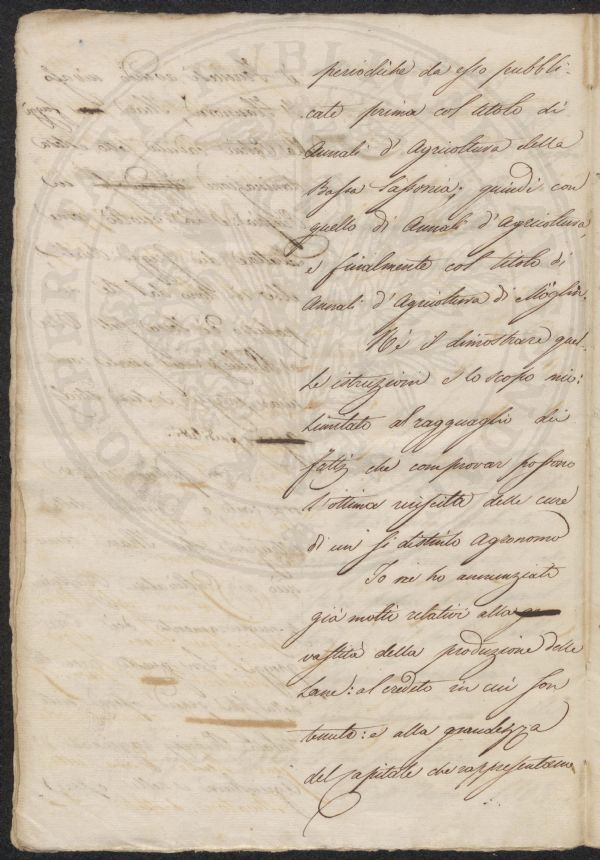 periodiche da esso pubbli-
cate prima col titolo di
Annali d'Agricoltura della
Bassa Sassonia; quindi con
quello di Annali d'Agricoltura,
e finalmente col titolo di
Annali d'Agricoltura di Möglin.
Nè il dimostrare quel-
le istruzioni e lo scopo mio:
limitato al ragguaglio dei
fatti, che comprovar possono
l'ottima riuscita delle cure
di un sì distinto Agronomo
Io ne ho annunziati
già molti relativi alla
vastità della produzione delle
Lane: al credito in cui son
tenute: e alla grandezza
del capitale che rappresentano